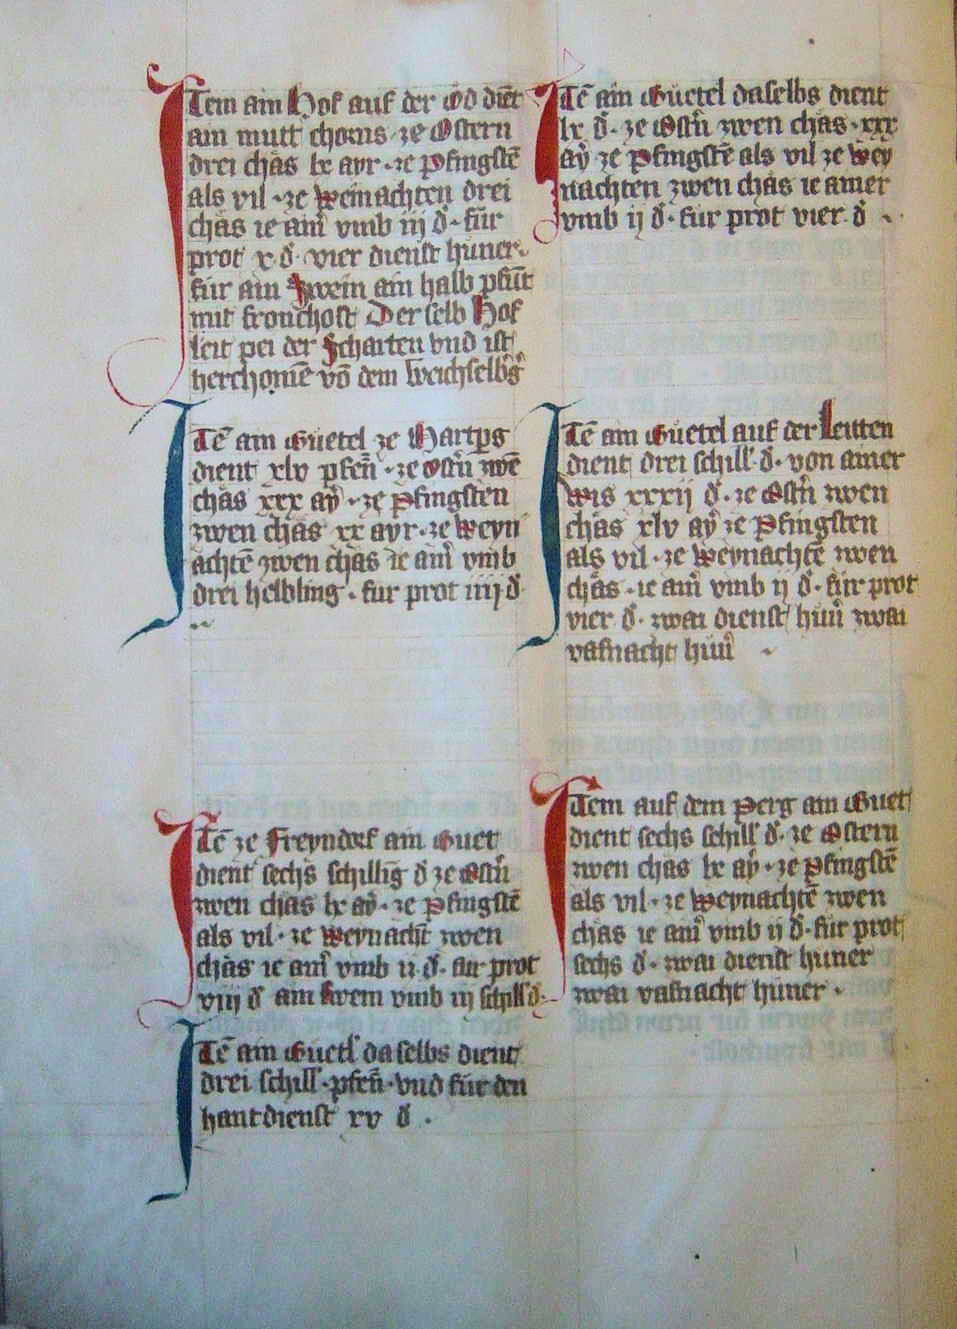 Item ain Hof auf der Öd dient̄
ain mutt chorns · ze Ostern
drei chäs lx ayr · ze Pfingstē
als vil · ze weinachten drei
chäs ie ain͛ vmb iij d͛ · für
prot x d͛ · vier dienst hüner ·
für ain Swein ain halb pfūt
mit fronchost Der selb Hof
leit pei der Scharten vnd ist
herchomē vō dem Weichselb͛g
Itē ain Güetel ze Hartp͛g
dient xlv pfeñ · ze Ost͛n zwē
chäs xxx aÿ · ze Pfingsten
zwen chäs xx ayr · ze Weyn
achtē zwen chäs ie ain͛ vmb
drei helbling · für prot iiij d͛
Itē ze Freyndorf ain Guet
dient sechs schillīg d͛ ze Ost͛n
zwen chäs lx aÿ · ze Pfingstē
als vil · ze Weynacht̄ zwen
chäs ie ain͛ vmb ij d͛ · für prot
viij d͛ ain Swein vmb iij schill͛ d͛ ·
Itē ain Güetl͛ daselbs dient
drei schill͛ · pfeñ · vnd für den
hantdienst xv d͛ ·
Itē ain Güetel daselbs dient
lx d͛ · ze Ost͛n zwen chäs · xxx
aÿ ze Pfingstē als vil ze Wey
nachten zwen chäs ie ainer
vmb ij d͛ · für prot vier d͛ ·
Itē ain Güetel auf der Leitten
dient drei schill͛ · d͛ · von ainer
Wis xxxij d͛ · ze Ost͛n zwen
chäs xlv aÿ ze Pfingsten
als vil · ze Weynachtē zwen
chäs · ie ain͛ vmb ij d͛ · für prot
vier d͛ · zwai dienst hün͛ zwai
vasnacht hün͛ ·
Item auf dem Perg ain Guet
dient sechs schill͛ d͛ · ze Ostern
zwen chäs lx aÿ · ze Pfingstē
als vil · ze Weynachtē zwen
chäs ie ain͛ vmb ij d͛ · für prot
sechs d͛ · zwai dienst hüner
zwai vasnacht hüner ·